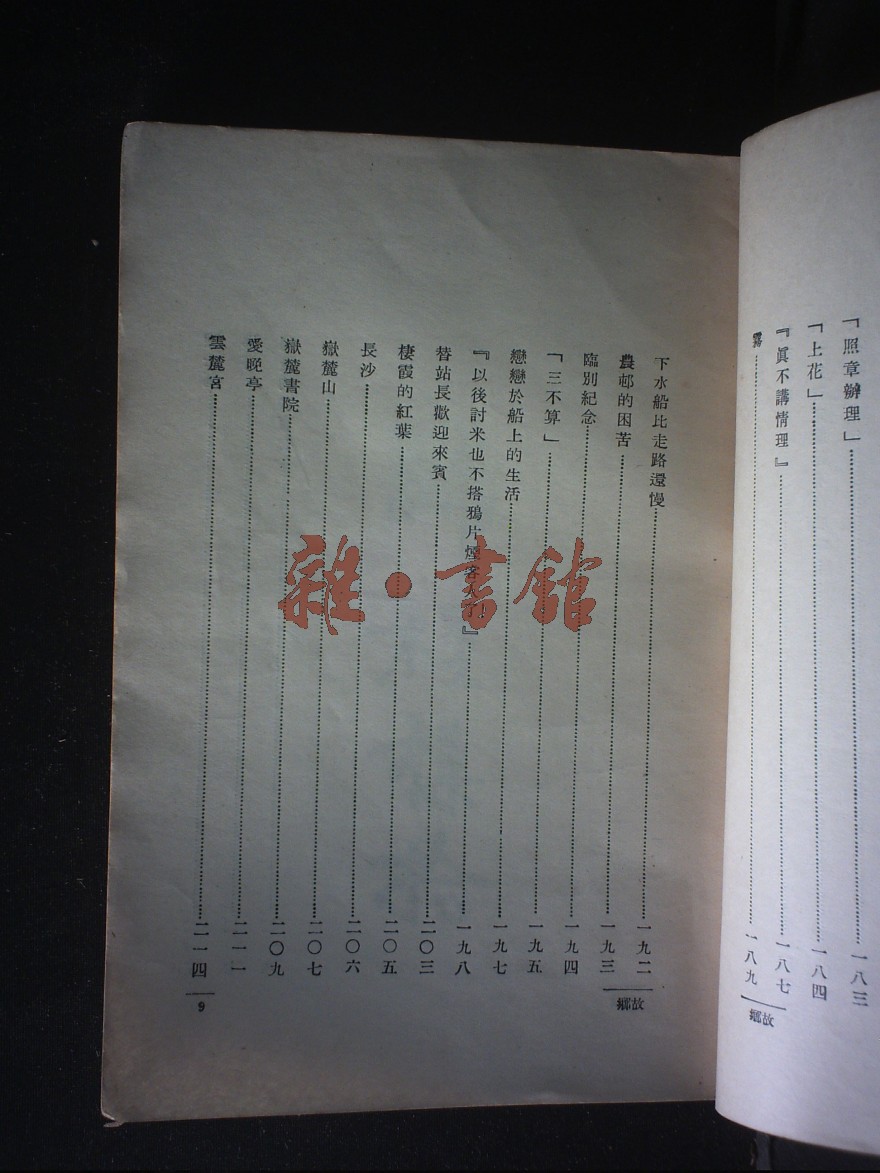 「照章辦理」……一八三
「上花」……一八四
『眞不講情理』……一八七
霧……一八九
鄉故
下水船比走路還慢……一九二
農邨的困苦……一九三
臨別紀念……一九四
「三不算」……一九五
戀戀於船上的生活……一九七
『以後討米也不搭鴉片煙客人 』……一九八
替站長歡迎來賓……二〇三
棲霞的紅葉……二〇五
長沙……二〇六
嶽麓山……二〇七
嶽麓書院……二〇九
愛晚亭……二一一
雲麓宮……二一四
鄉故
9
雜·書館